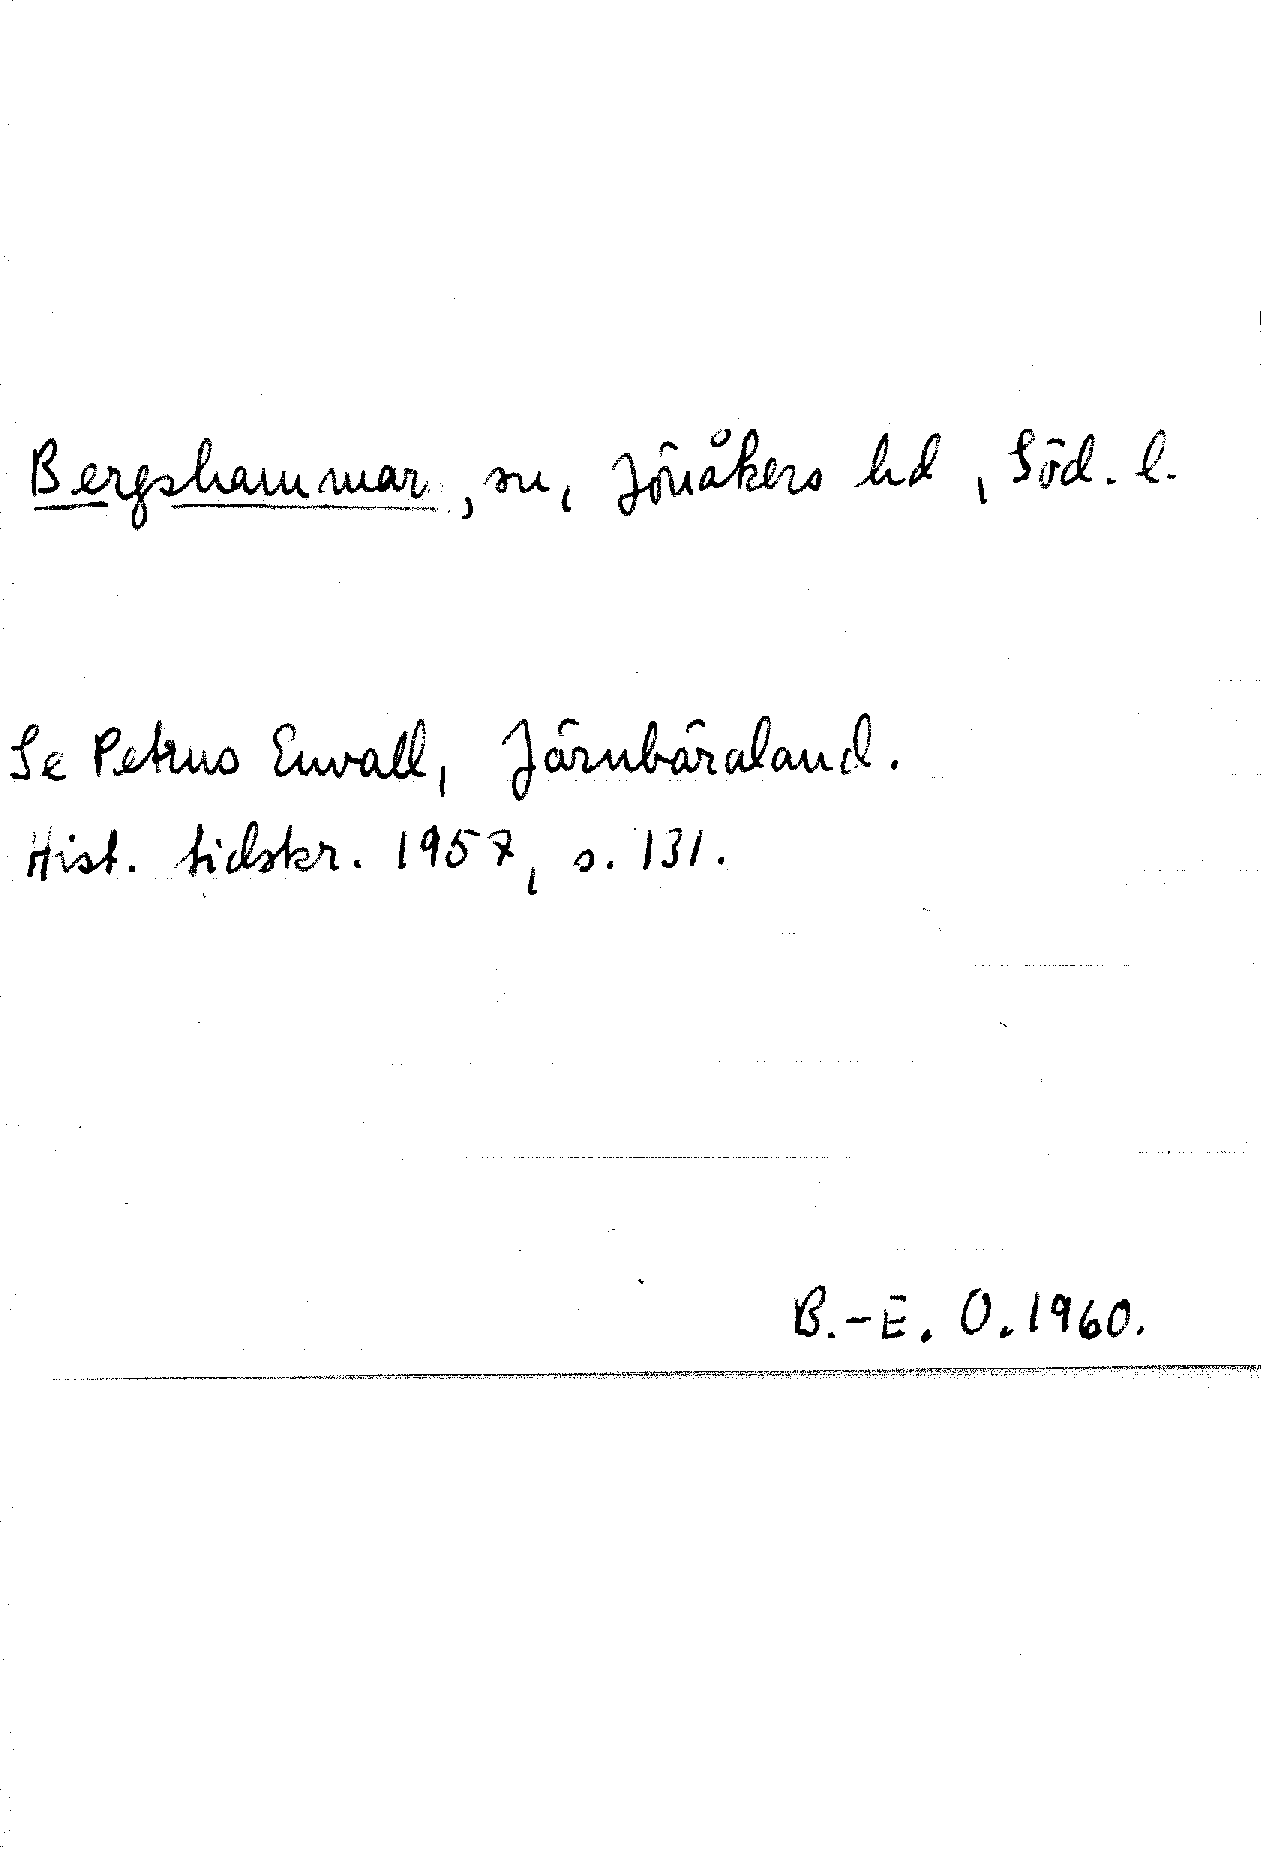 Bergshammar, sn, Jönåkers hd, Söd. l.
Se Petrus Envall, Järnbäraland.
Hist. tidskr. 1957, s. 131.
B.-E. O. 1960.